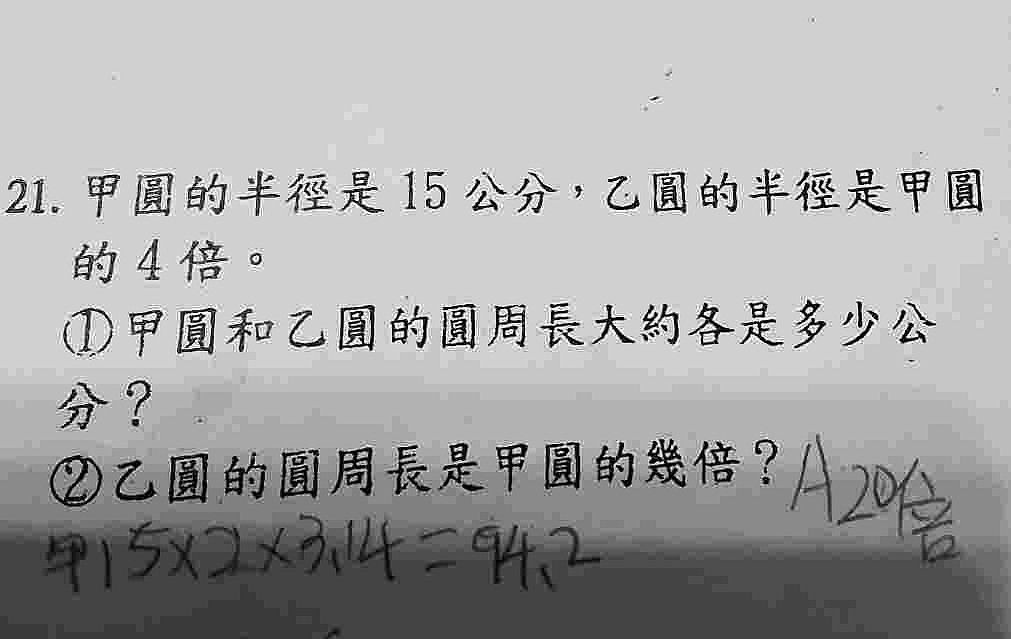 21. 甲圓的半徑是 15 公分，乙圓的半徑是甲圓
的 4 倍。
①甲圓和乙圓的圓周長大約各是多少公
分？
②乙圓的圓周長是甲圓的幾倍？ A20倍
甲15×2×3.14=94.2